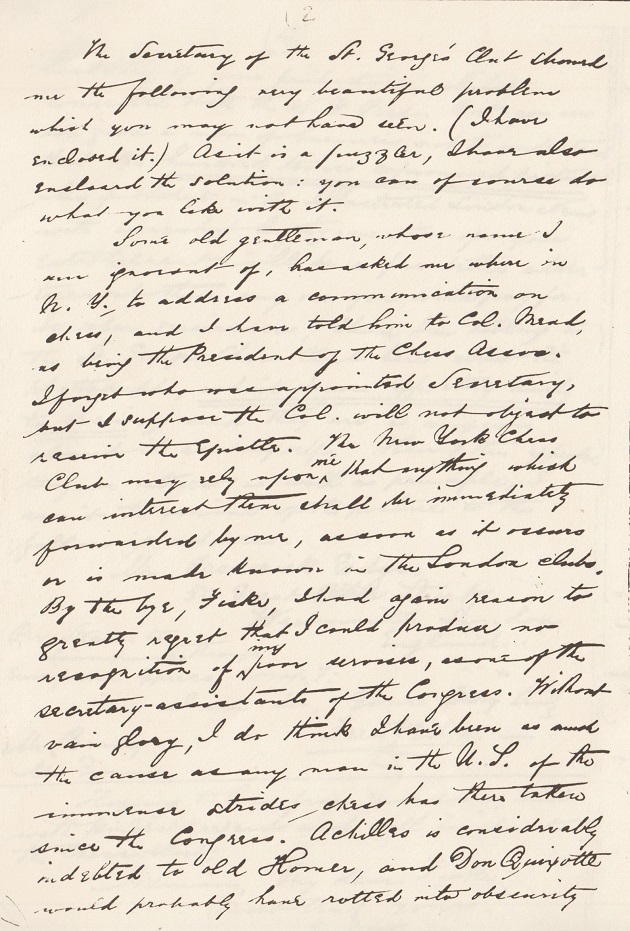 (2
The Secretary of the St. George's Club showed
me the following very beautiful problem
which you may not have seen. (I have
enclosed it.) As it is a puzzler, I have also
enclosed the solution: you can of course do
what you like with it.
Some old gentleman, whose name I
am ignorant of, has asked me where in
N. Y. to address a communication on
chess, and I have told him to Col. Mead,
as being the President of the Chess Assoc.
I forget who was appointed Secretary,
but I suppose the Col. will not object to
receive the Epistle. The New York Chess
Club may rely upon me that anything which
can interest them shall be immediately
forwarded by me, as soon as it occurs
or is made known in the London clubs.
By the bye, Fiske, I had again reason to
greatly regret that I could produce no
recognition of my poor services, as one of the
secretary-assistants of the Congress. Without
vain glory, I do think I have been as much
the cause as any man in the U. S. of the
immense strides chess has there taken
since the Congress. Achilles is considerably
indebted to old Homer, and Don Quixotte
would probably have rotted into obscurity